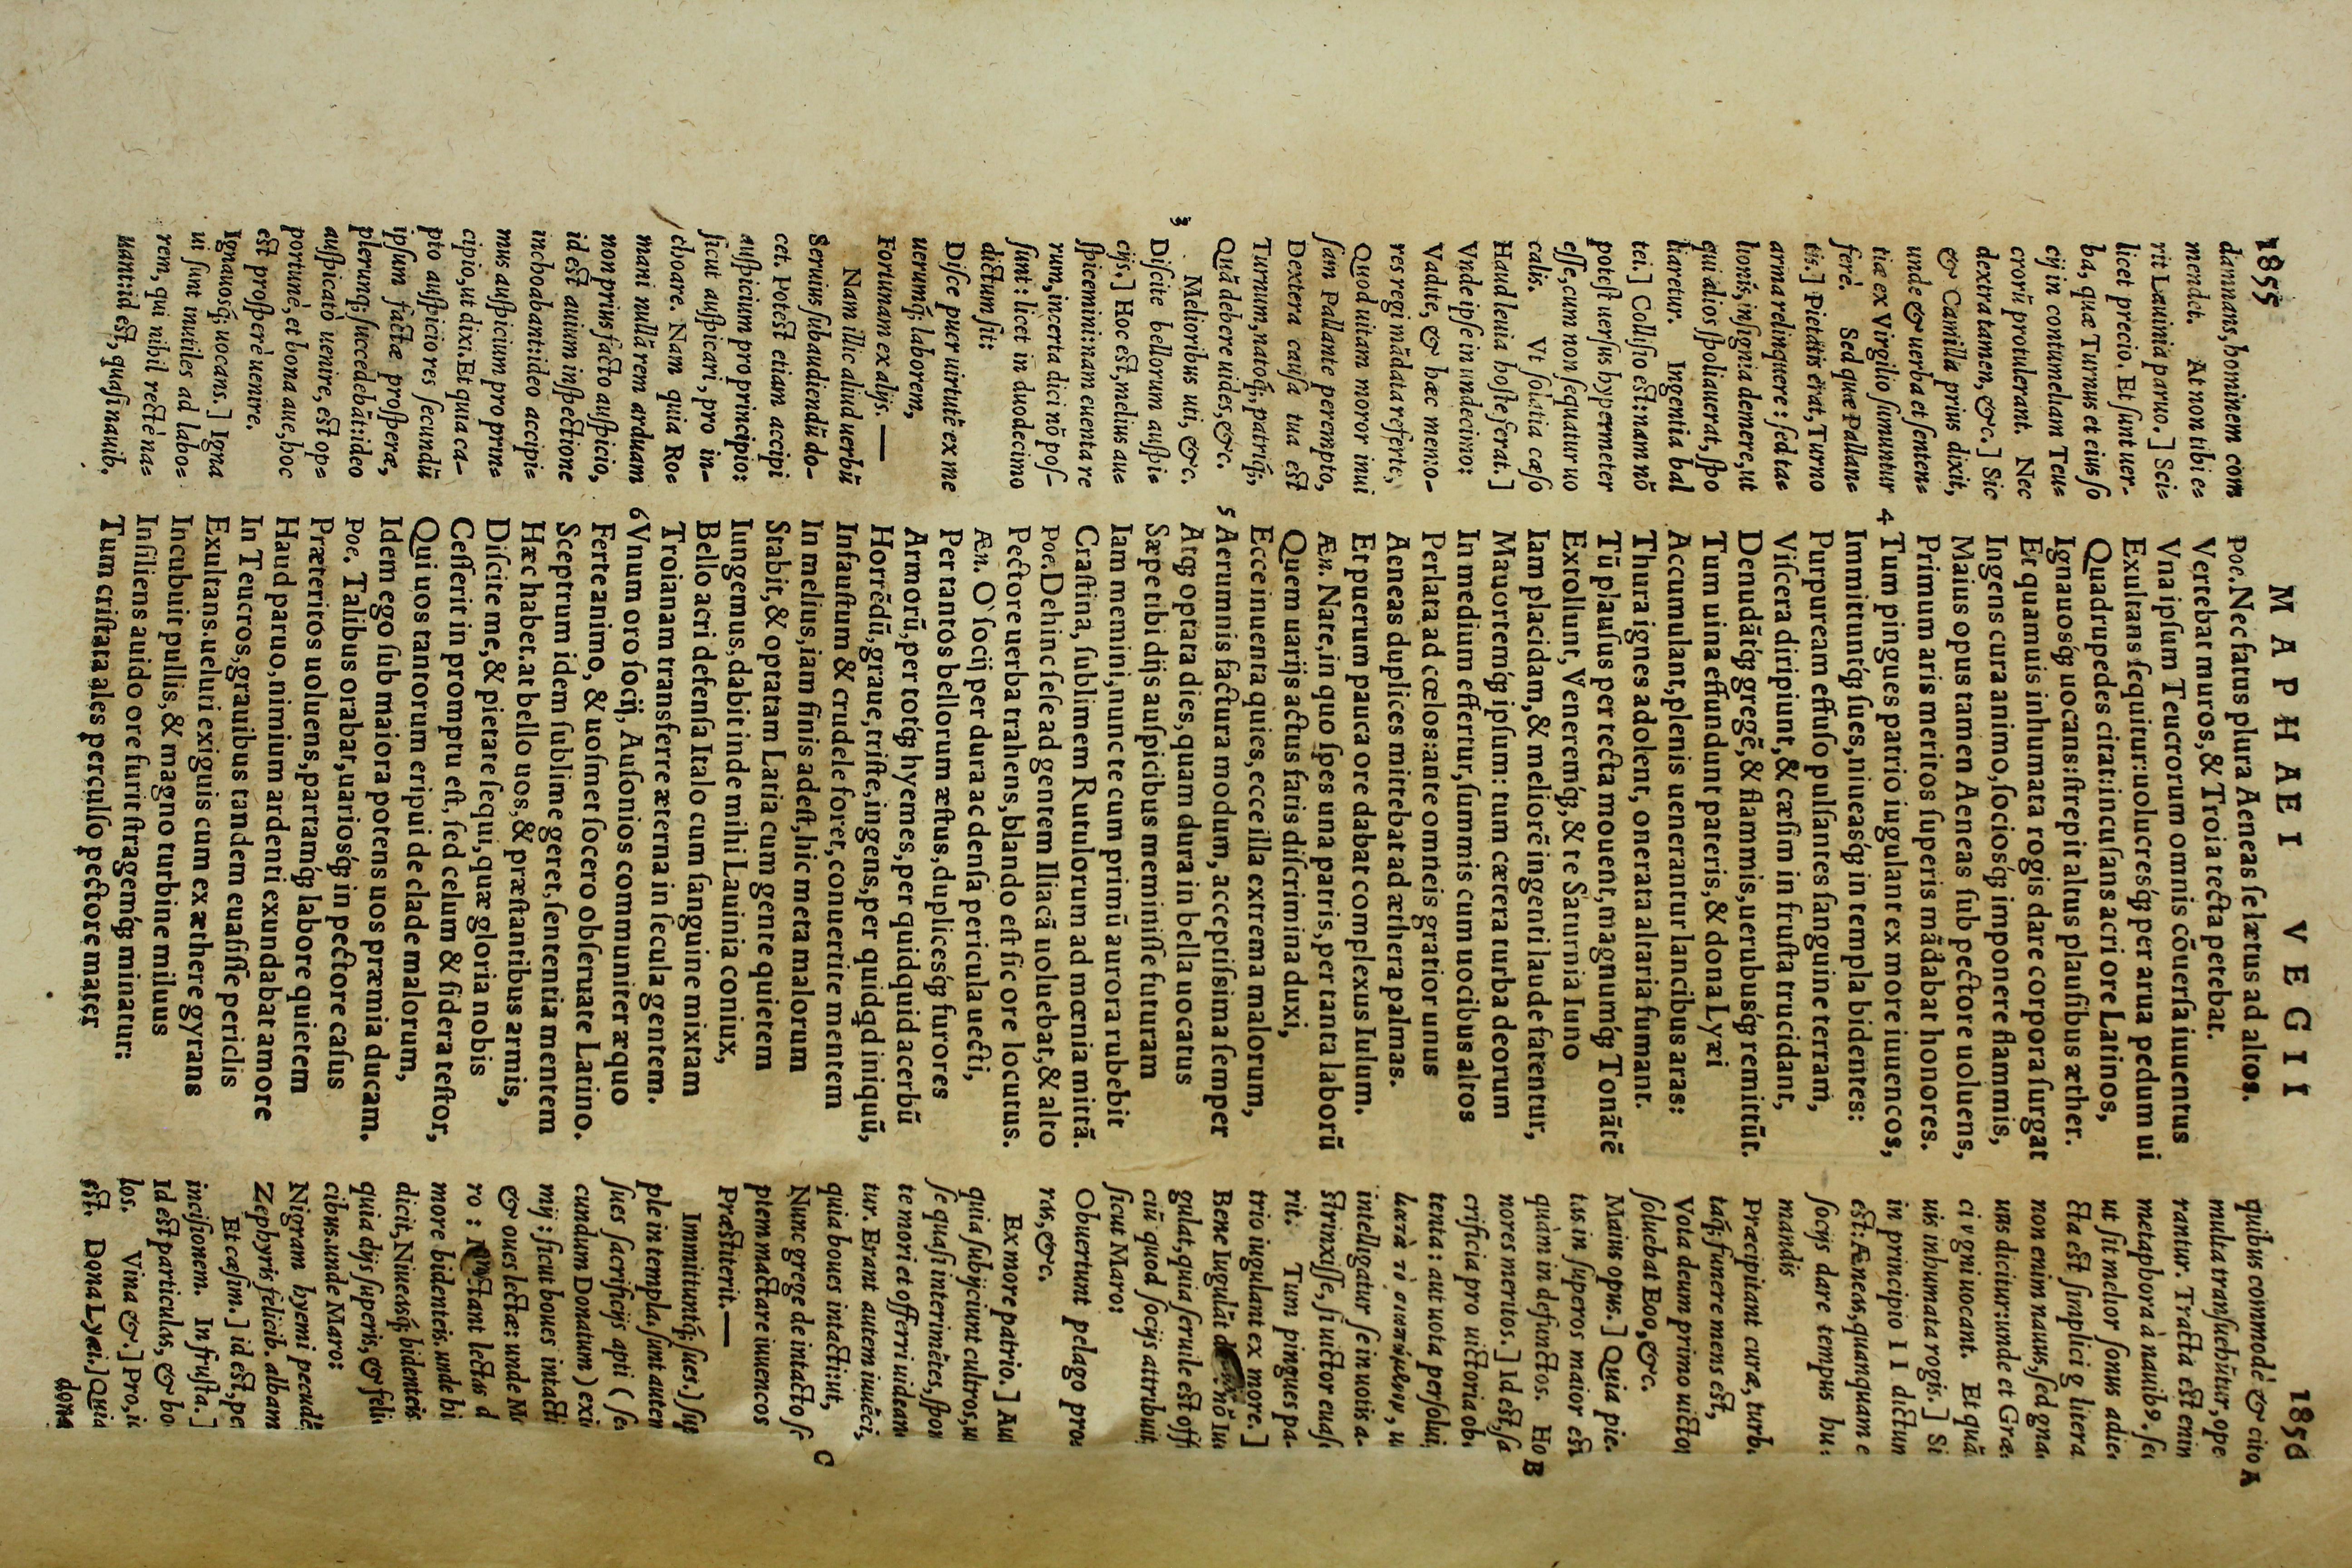 1855
MAPHAEI VEGII
1856
damnans, hominem com
mendet. At non tibi e⸗
rit Lauinia paruo.] Sci⸗
licet precio. Et sunt uer-
ba, quæ Turnus et eius so
cij in contumeliam Teu⸗
crorū protulerant. Nec
dextra tamen, &c.] Sic
& Camilla prius dixit,
unde & uerba et senten⸗
tiæ ex Virgilio sumuntur
ferè. Sed quæ Pallan⸗
tis.] Pietatis erat, Turno
arma relinquere: sed ta⸗
lionis, insignia demere, ut
qui alios spoliauerat, spo
liaretur. Ingentia bal
tei.] Collisio est: nam nō
potest uersus hypermeter
esse, cum non sequatur uo
calis. Vt solatia cæso
Haud leuia hoste ferat.]
Vnde ipse in undecimo:
Vadite, & hæc memo-
res regi mādata referte,
Quod uitam moror inui
sam Pallante perempto,
Dextera causa tua est
Turnum, natoq́;, patriq́;,
Quā debere uides, &c.
3 Melioribus uti, &c.
Discite bellorum auspi⸗
cijs.] Hoc est, melius au⸗
spicemini: nam euenta re
rum, incerta dici nō pos-
sunt: licet in duodecimo
dictum sit:
Disce puer uirtutē ex me
uerumq́; laborem,
Fortunam ex alijs. —
Nam illic aliud uerbū
Seruius subaudiendū do-
cet. Potest etiam accipi
auspicium pro principio:
sicut auspicari, pro in-
choare. Nam quia Ro⸗
mani nullā rem arduam
non prius facto auspicio,
id est auium inspectione
inchoabant: ideo accipi⸗
mus auspicium pro prin⸗
cipio, ut dixi. Et quia ca-
pto auspicio res secundū
ipsum factæ prosperæ,
plerunq; succedebāt: ideo
auspicatò uenire, est op⸗
portunè, et bona aue, hoc
est prosperè uenire.
Ignauosq́; uocans.] Igna
ui sunt inutiles ad labo⸗
rem, qui nihil rectè na⸗
uant: id est, quasi nauib.
Poe. Nec fatus plura Aeneas se lætus ad altos.
Vertebat muros, & Troia tecta petebat.
Vna ipsum Teucrorum omnis cōuersa iuuentus
Exultans sequitur: uolucresq́ꝫ per arua pedum ui
Quadrupedes citat: incusans acri ore Latinos,
Ignauosq́ꝫ uocans: strepit altus plausibus æther.
Et quamuis inhumata rogis dare corpora surgat
Ingens cura animo, sociosq́ꝫ imponere flammis,
Maius opus tamen Aeneas sub pectore uoluens,
Primum aris meritos superis mādabat honores.
4 Tum pingues patrio iugulant ex more iuuencos,
Immittuntq́ꝫ sues, niueasq́ꝫ in templa bidentes:
Purpuream effuso pulsantes sanguine terram,
Viscera diripiunt, & cæsim in frusta trucidant,
Denudātq́ꝫ gregē, & flammis, uerubusq́ꝫ remittūt.
Tum uina effundunt pateris, & dona Lyæi
Accumulant, plenis uenerantur lancibus aras:
Thura ignes adolent, onerata altaria fumant.
Tū plausus per tecta mouent, magnumq́ꝫ Tonātē
Extollunt, Veneremq́ꝫ, & te Saturnia Iuno
Iam placidam, & meliorē ingenti laude fatentur,
Mauortemq́ꝫ ipsum: tum cætera turba deorum
In medium effertur, summis cum uocibus altos
Perlata ad cœlos: ante omneis gratior unus
Aeneas duplices mittebat ad æthera palmas.
Et puerum pauca ore dabat complexus Iulum.
Æn. Nate, in quo spes una patris, per tanta laborū
Quem uarijs actus fatis discrimina duxi,
Ecce inuenta quies, ecce illa extrema malorum,
5 Aerumnis factura modum, acceptissima semper
Atqꝫ optata dies, quam dura in bella uocatus
Sæpe tibi dijs auspicibus meminisse futuram
Iam memini, nunc te cum primū aurora rubebit
Crastina, sublimem Rutulorum ad mœnia mittā.
Poe. Dehinc sese ad gentem Iliacā uoluebat, & alto
Pectore uerba trahens, blando est sic ore locutus.
Æn. O` socij per dura ac densa pericula uecti,
Per tantos bellorum æstus, duplicesq́ꝫ furores
Armorū, per totq́ꝫ hyemes, per quidquid acerbū
Horrēdū, graue, triste, ingens, per quidqd iniquū,
Infaustum & crudele foret, conuertite mentem
In melius, iam finis adest, hic meta malorum
Stabit, & optatam Latia cum gente quietem
Iungemus, dabit inde mihi Lauinia coniux,
Bello acri defensa Italo cum sanguine mixtam
Troianam transferre æterna in secula gentem.
6 Vnum oro socij, Ausonios communiter æquo
Ferte animo, & uosmet socero obseruate Latino.
Sceptrum idem sublime geret, sententia mentem
Hæc habet. at bello uos, & præstantibus armis,
Discite me, & pietate sequi, quæ gloria nobis
Cesserit in promptu est, sed celum & sidera testor,
Qui uos tantorum eripui de clade malorum,
Idem ego sub maiora potens uos præmia ducam.
Poe. Talibus orabat, uariosq́ꝫ in pectore casus
Præteritos uoluens, partamq́ꝫ labore quietem
Haud paruo, nimium ardenti exundabat amore
In Teucros, grauibus tandem euasisse periclis
Exultans. ueluti exiguis cum ex æthere gyrans
Incubuit pullis, & magno turbine miluus
Insiliens auido ore furit stragemq́ꝫ minatur:
Tum cristata ales perculso pectore mater
quibus commodè & cito A
multa transuehūtur, ope
rantur. Tracta est enim
metaphora à nauibꝰ. sci
ut sit melior sonus adie⸗
cta est simplici g litera
non enim nauus, sed gna⸗
uus dicitur: unde et Græ⸗
ci v gni uocant. Et quā
uis inhumata rogis.] Si
in principio II dictum
est: Æneas, quanquam e
socijs dare tempus hu⸗
mandis
Præcipitant curæ, turb.
taq́; funere mens est,
Vota deum primo uictor
soluebat Eoo, &c.
Maius opus.] Quia pie⸗
tas in superos maior est
quàm in defunctos. Ho B
nores meritos.] Id est, sa
crificia pro uictoria ob⸗
tenta: aut uota persolui
κατὰ τὸ σιωπώμενον, u
intelligatur se in uotis a-
strinxisse, si uictor euasi
rit. Tum pingues pa-
trio iugulant ex more.]
Bene Iugulāt nō Iu
gulat, quia seruile est off
ciū quod socijs attribuit
sicut Maro:
Obuertunt pelago pro⸗
ras, &c.
Ex more patrio.] Aut
quia subijciunt cultros, u
se quasi interimētes, spon
te mori et offerri uidean
tur. Erant autem iuuēci,
quia boues intacti: ut, C
Nunc grege de intacto se
ptem mactare iuuencos
Præstiterit. —
Immittuntq́; sues.] sup
ple in templa. sunt autem
sues sacrificijs apti (se⸗
cundum Donatum) exi
mij: sicut boues intacti
& oues lectæ: unde Ma
ro: Mactant lectas d
more bidenteis. unde hi
dicit, Niueasq́; bidenteis
quia dijs superis, & feli
cibus. unde Maro:
Nigram hyemi pecudē
Zephyris felicib. albam
Et cæsim.] id est, per
incisionem. In frusta.]
Id est particulas, & bo
los. Vina &.] Pro, id
est. Dona Lyæi.] Quia
dona